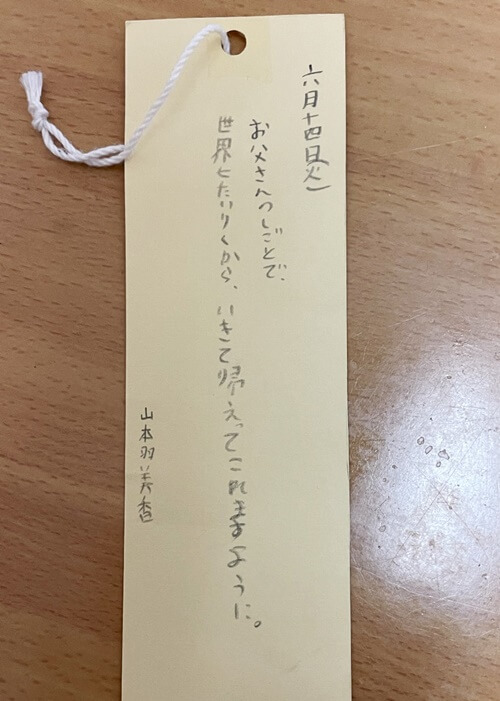 六月十四日(火)
お父さんのしごとで、
世界七たいりくから、いきて帰えってこれますように。
山本羽美香